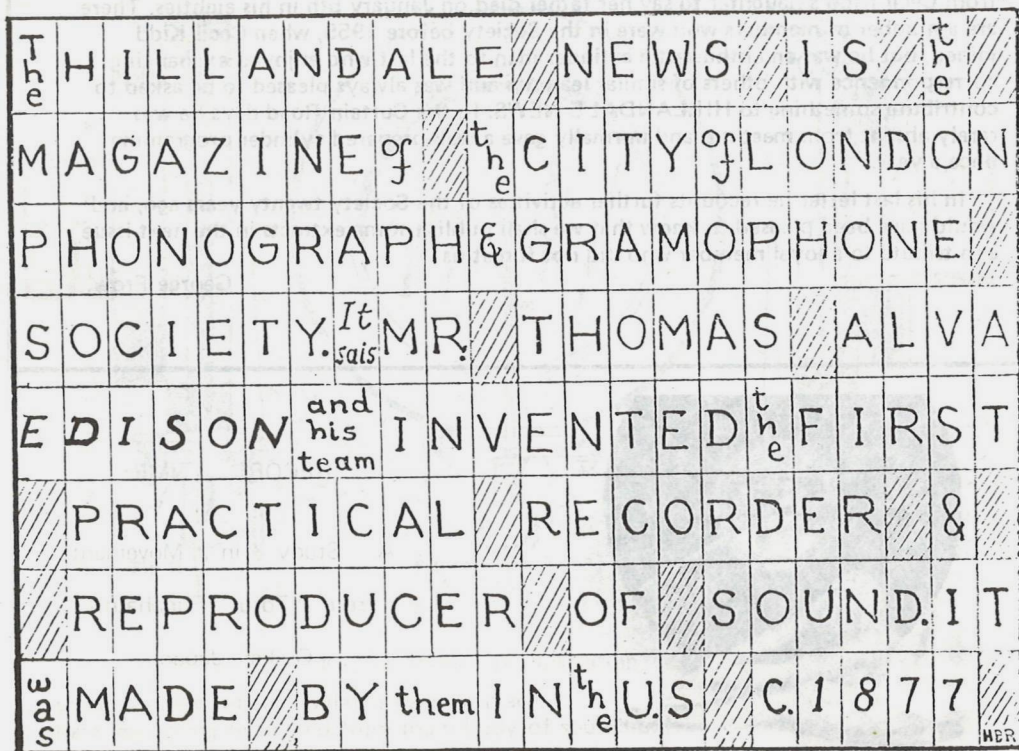 The HILLANDALE NEWS IS the
MAGAZINE of the CITY of LONDON
PHONOGRAPH & GRAMOPHONE
SOCIETY. It sais MR. THOMAS ALVA
EDISON and his team INVENTED the FIRST
PRACTICAL RECORDER &
REPRODUCER OF SOUND. IT
was MADE BY them IN the US C. 1877
HBR